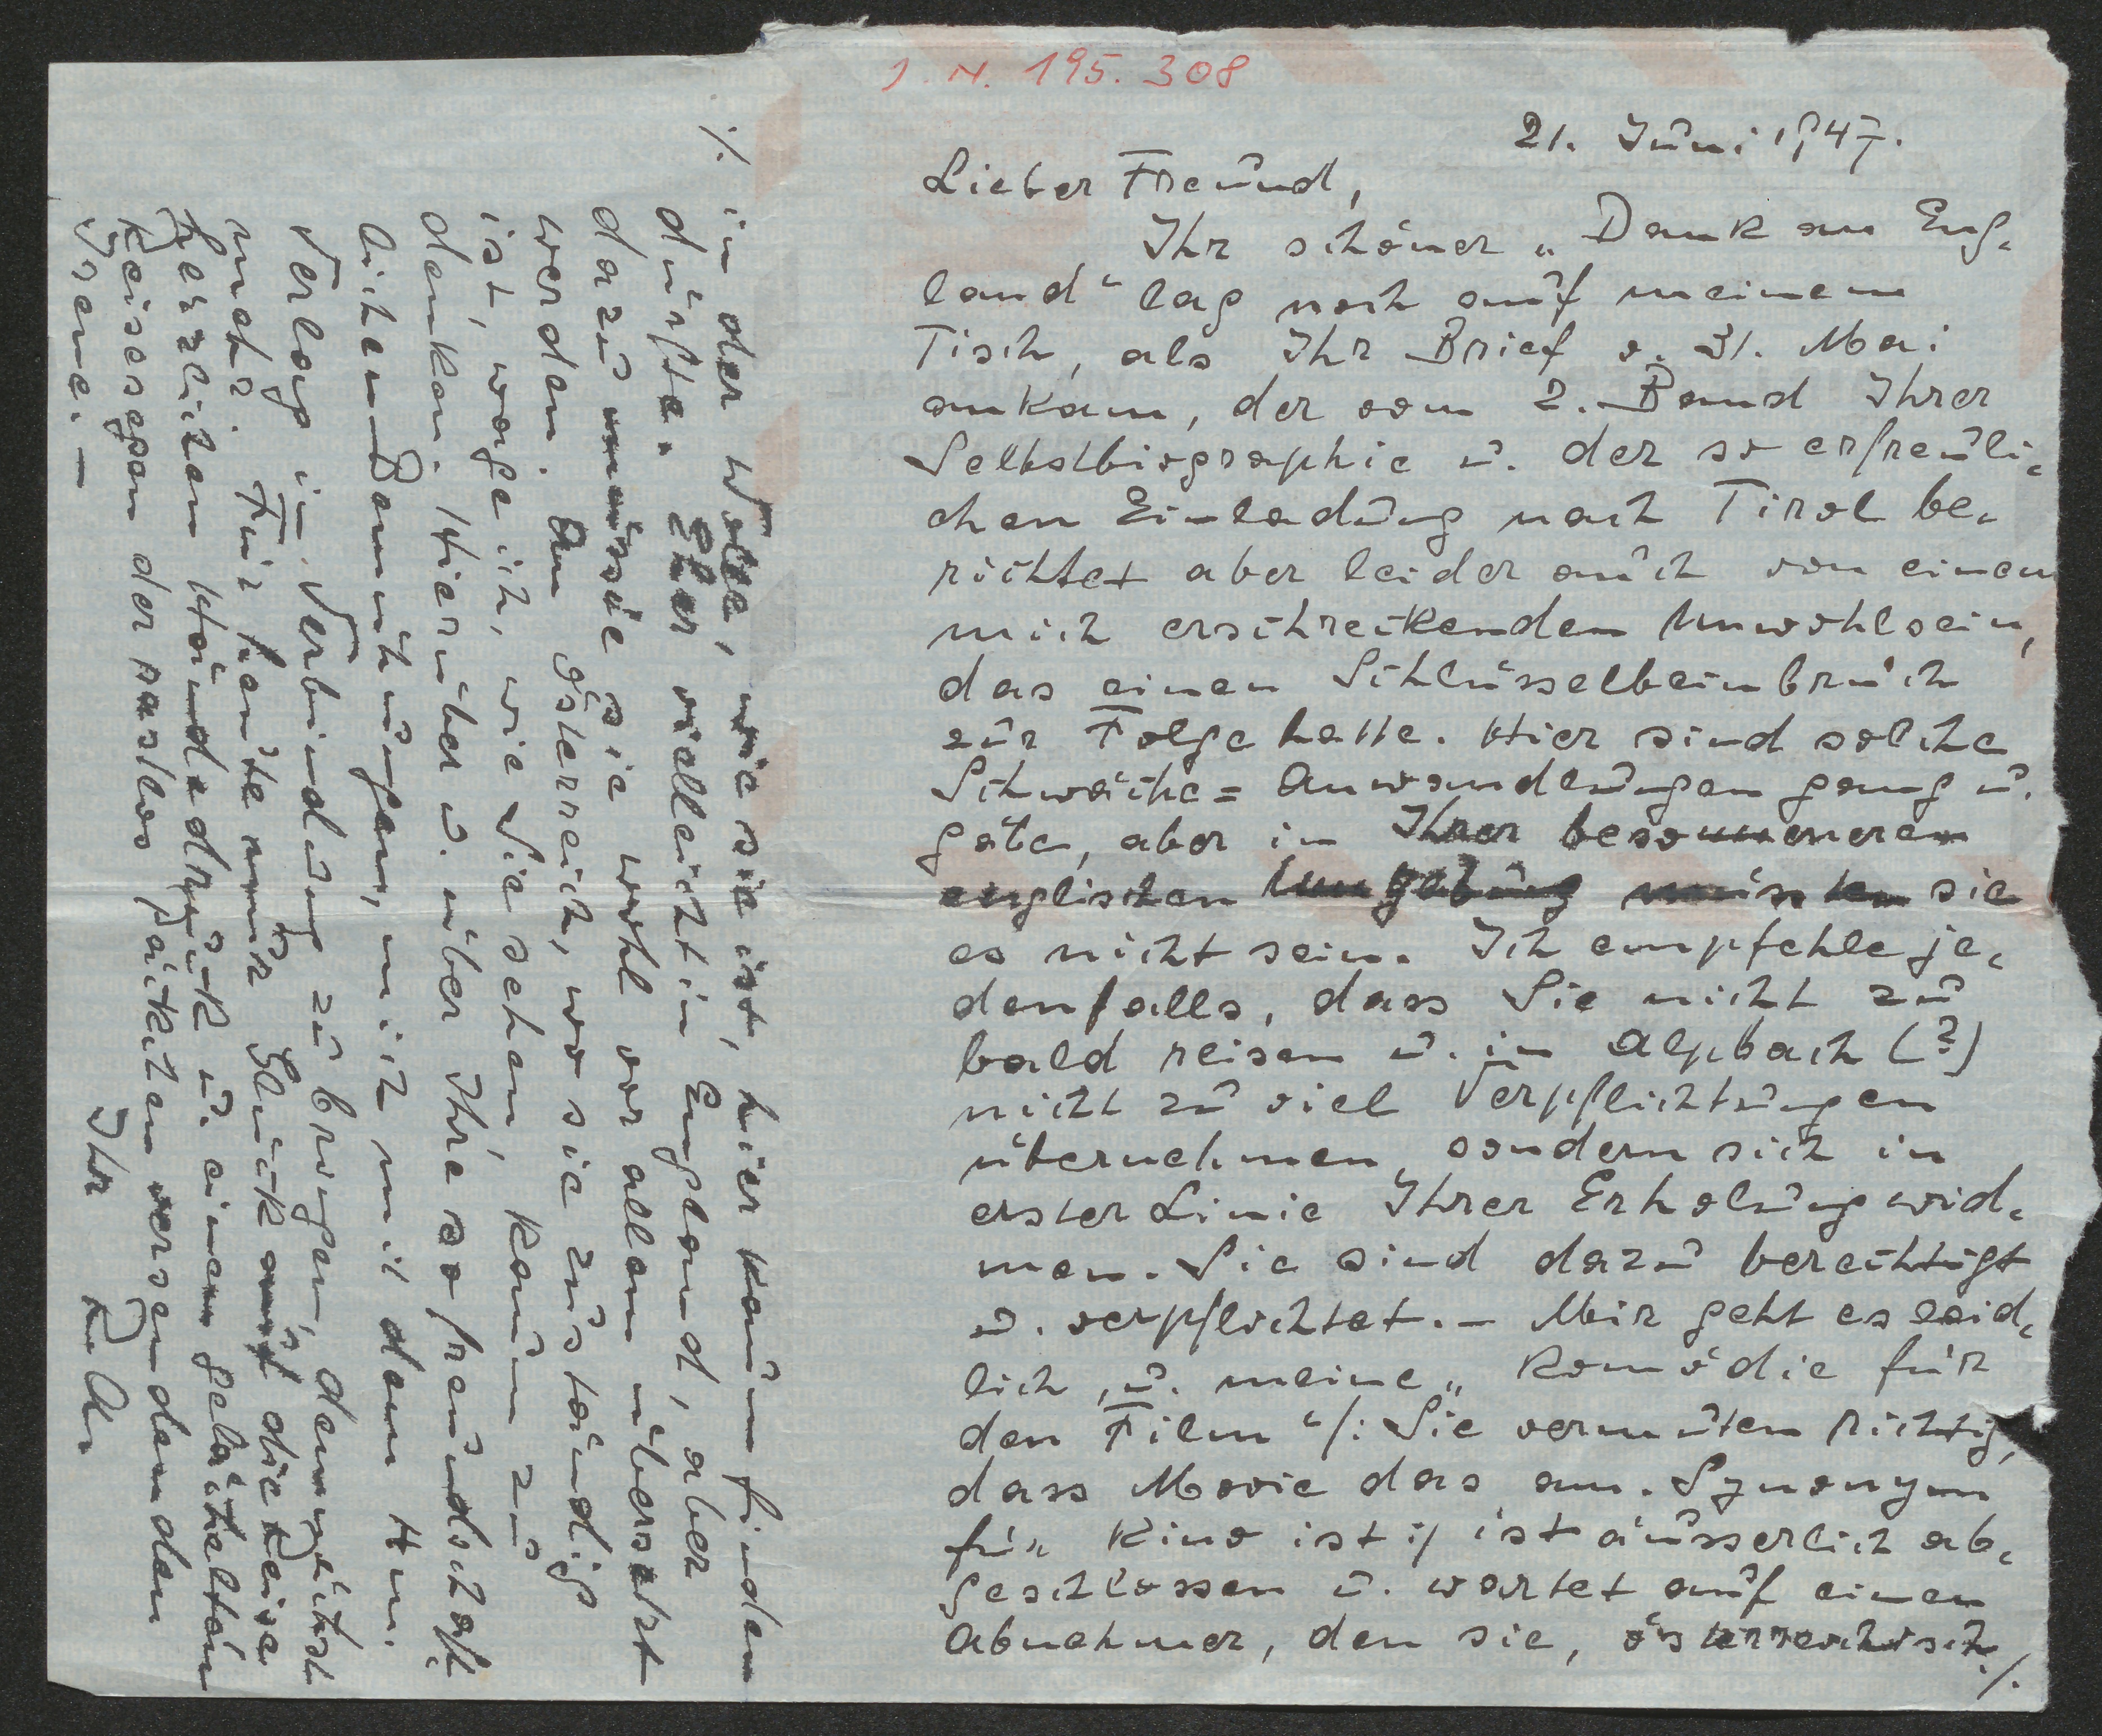 J. N. 195.308
21. Juni 1947.
Lieber Freund,
Ihr schöner „Dank an Eng-
land“ lag noch auf meinem
Tisch, als Ihr Brief v. 31. Mai
ankam, der vom 2. Band Ihrer
Selbstbiographie u. der so erfreuli-
chen Einladung nach Tirol be-
richtet aber leider auch von einem
mich erschreckenden Unwohlsein,
das einen Schlüsselbeinbruch
zur Folge hatte. Hier sind solche
Schwäche= Anwandlungen gang u.
gäbe, aber in Ihrer besonneneren
englischen Umgebung müssten sie
es nicht sein. Ich empfehle je-
denfalls, dass Sie nicht zu
bald reisen u. in Alpbach (?)
nicht zu viel Verpflichtungen
übernehmen, sondern sich in
erster Linie Ihrer Erholung wid-
men. Sie sind dazu berechtigt
u. verpflichtet. – Mir geht es leid-
lich, u. meine „Komödie für
den Film“ /: Sie vermuten richtig,
dass Movie das am. Synonym
für Kino ist :/ ist äusserlich ab-
geschlossen u. wartet auf einen
Abnehmer, den sie, österreichisch
./.
./.
in der Wolle, wie sie ist, hier kaum finden
dürfte. Eher vielleicht in England, aber
dazu müsste sie wohl vor allem übersetzt
werden. An Österreich, wo sie zuständig
ist, wage ich, wie Sie sehen, kaum zu
denken. Hierüber u. über Ihre so freundschaft-
lichen Bemühungen, mich mit dem Hum.
Verlag in Verbindung zu bringen, demnächst
mehr. Für heute nur Glück auf die Reise
herzlichen Händedruck u. einen gelächelten
Reisesegen der rastlos Päckchen versendenden
Irene. –
Ihr
R. Au.